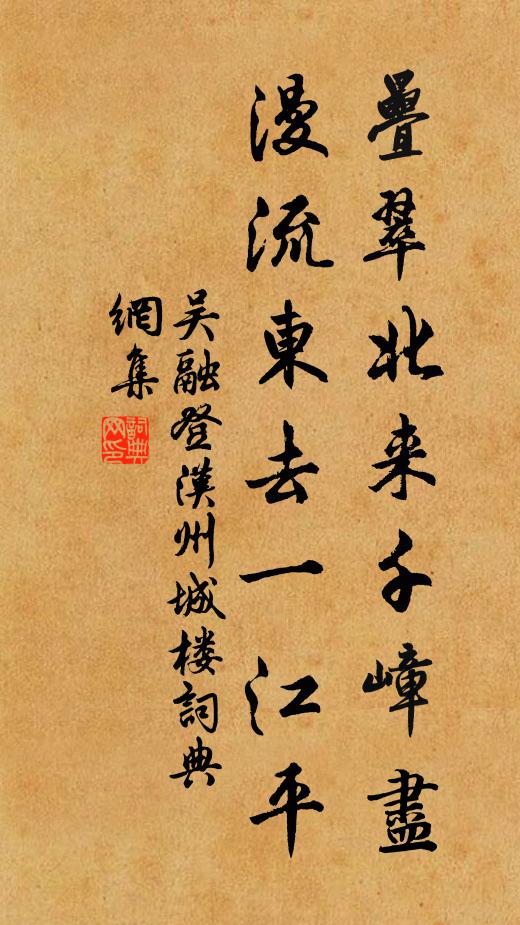 疊翠北来千嶂盡
漫流東去一江平
吴融登漢州城楼詞典
網集
詞典網印